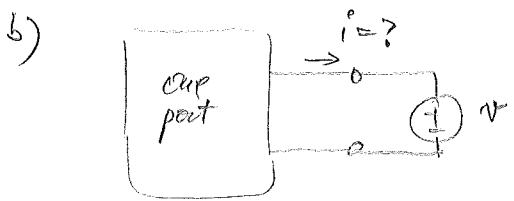 b)
i = ?
one
port
v